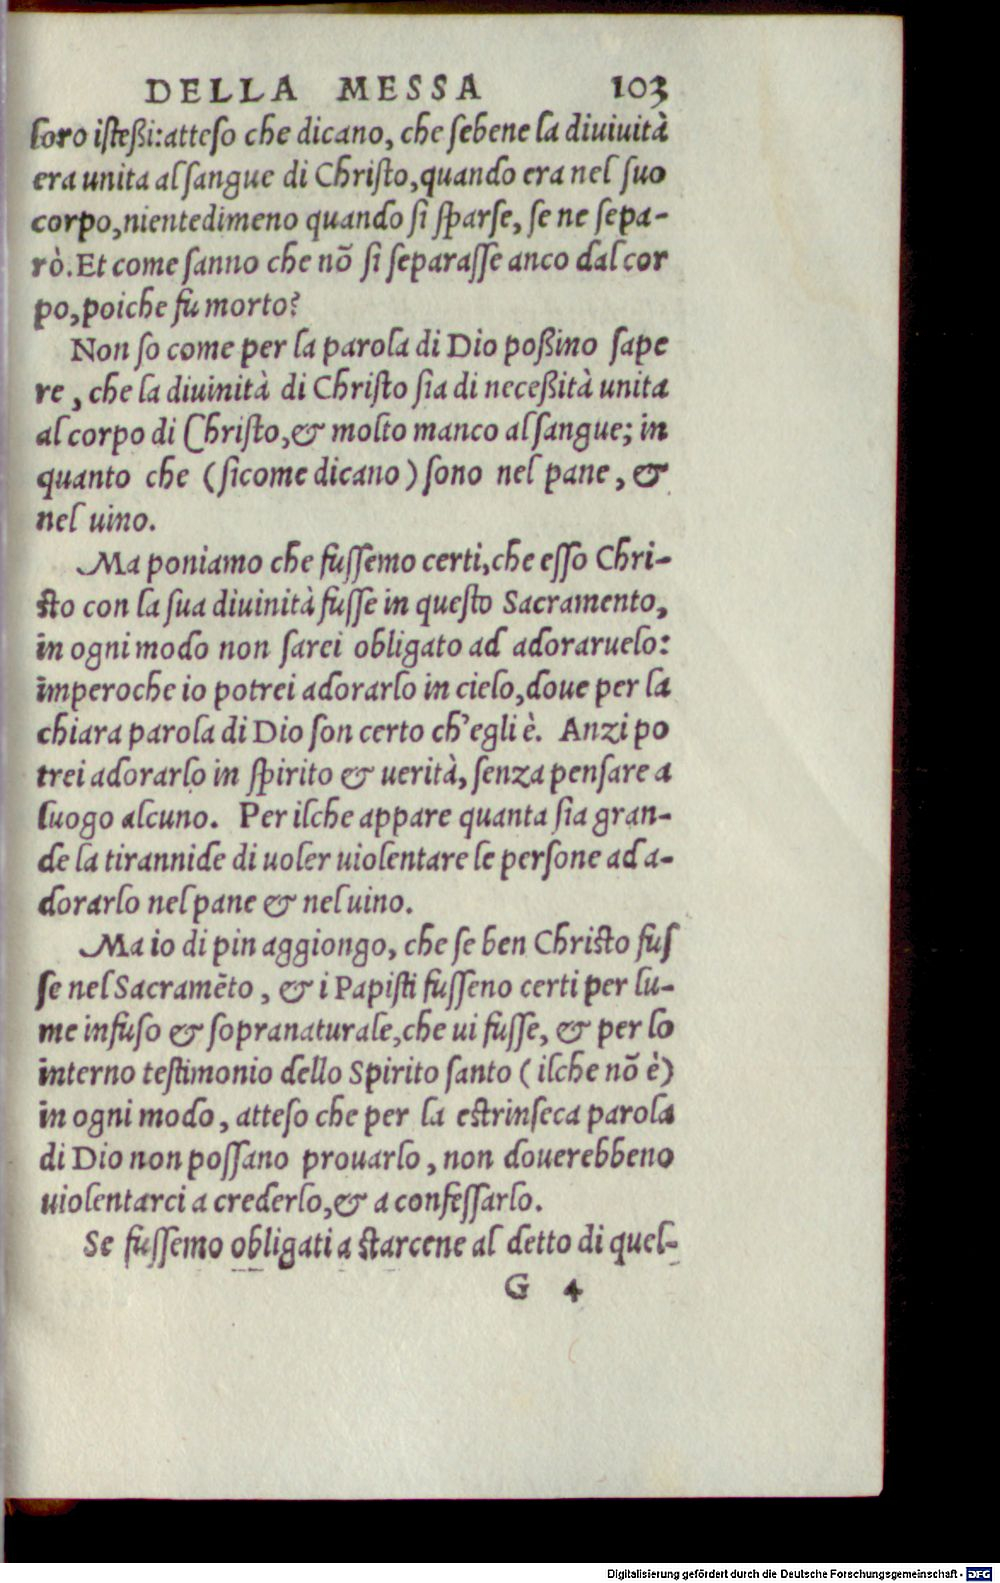 DELLA MESSA 103
loro isteßi: atteso che dicano, che sebene la diuiuità
era unita al sangue di Christo, quando era nel suo
corpo, nientedimeno quando si sparse, se ne sepa-
rò. Et come sanno che nõ si separasse anco dal cor
po, poiche fu morto?
Non so come per la parola di Dio poßino sape
re, che la diuinità di Christo sia di neceßità unita
al corpo di Christo, & molto manco al sangue; in
quanto che (sicome dicano) sono nel pane, &
nel uino.
Ma poniamo che fussemo certi, che esso Chri-
sto con la sua diuinità fusse in questo Sacramento,
in ogni modo non sarei obligato ad adoraruelo:
imperoche io potrei adorarlo in cielo, doue per la
chiara parola di Dio son certo ch'egli è. Anzi po
trei adorarlo in spirito & uerità, senza pensare a
luogo alcuno. Per ilche appare quanta sia gran-
de la tirannide di uoler uiolentare le persone ad a-
dorarlo nel pane & nel uino.
Ma io di pin aggiongo, che se ben Christo fus
se nel Sacramẽto, & i Papisti fusseno certi per lu-
me infuso & sopranaturale, che ui fusse, & per lo
interno testimonio dello Spirito santo (ilche nõ è)
in ogni modo, atteso che per la estrinseca parola
di Dio non possano prouarlo, non douerebbeno
uiolentarci a crederlo, & a confessarlo.
Se fussemo obligati a starcene al detto di quel-
G 4
Digitalisierung gefördert durch die Deutsche Forschungsgemeinschaft - DFG